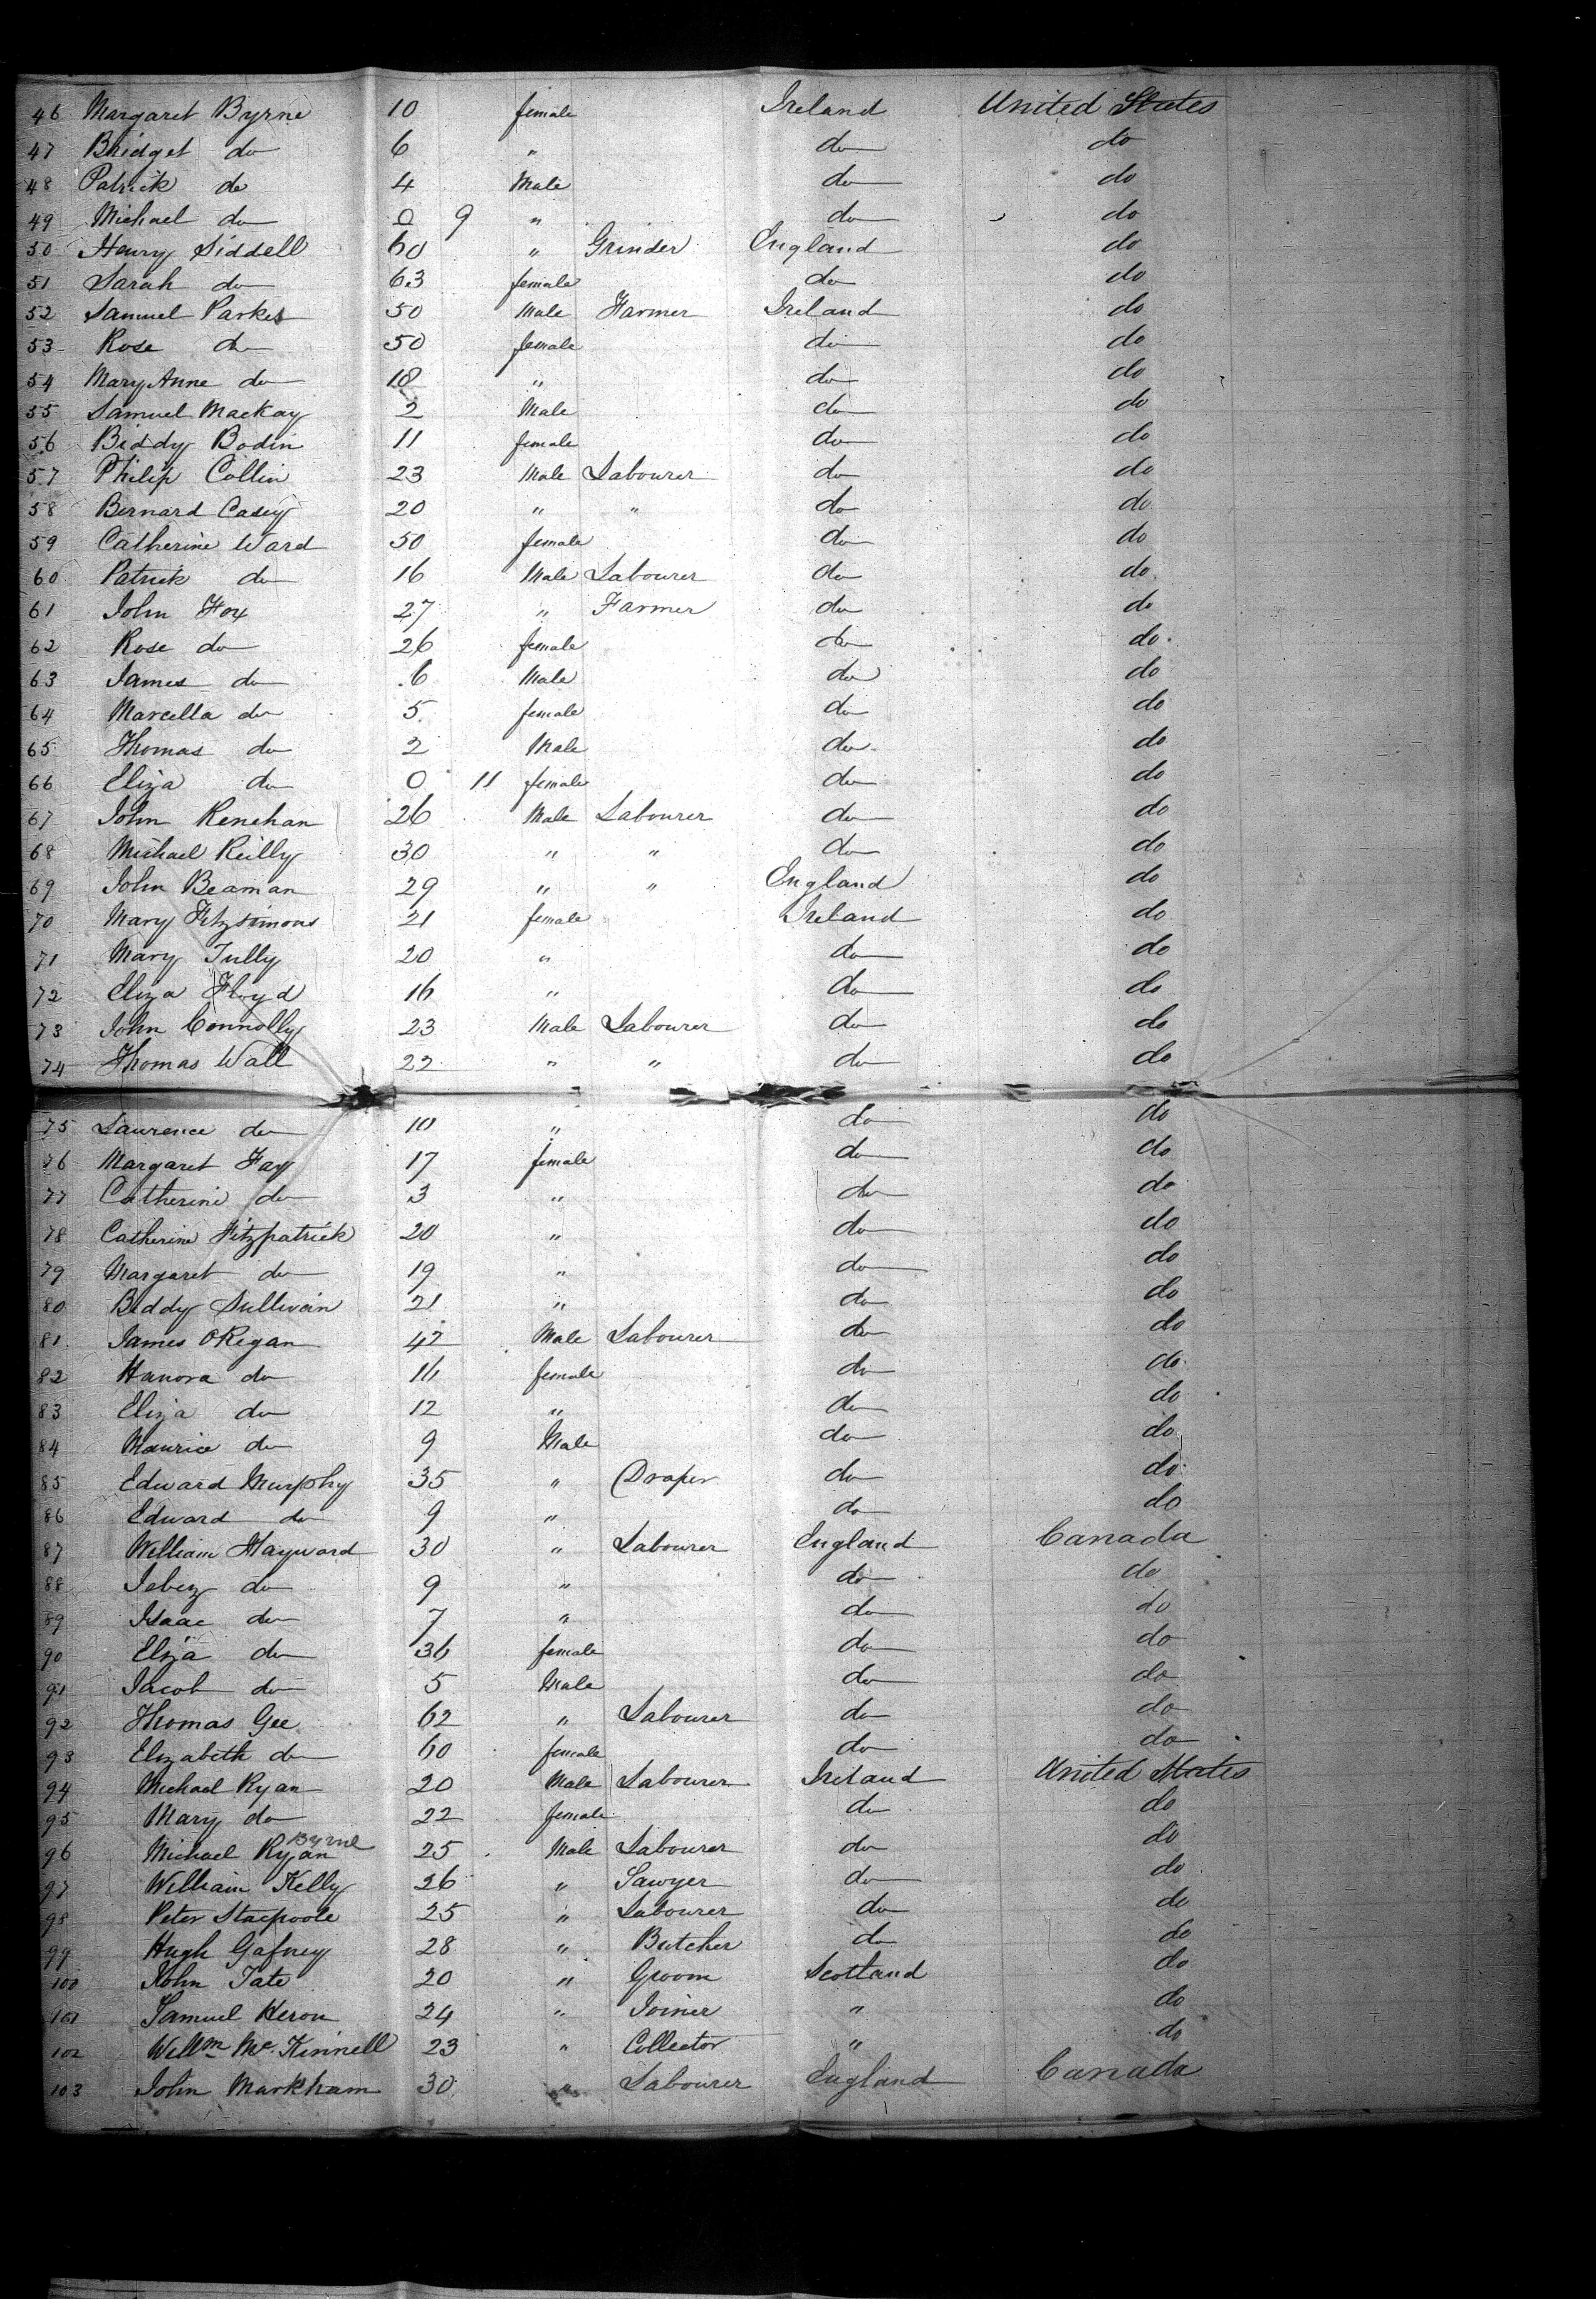 46 Margaret Byrne 10 female Ireland United States
47 Bridget do 6 " do do
48 Patrick do 4 Male do do
49 Michael do 0 9 " do do
50 Henry Siddell 60 " Grinder England do
51 Sarah do 63 female do do
52 Samuel Parkes 50 Male Farmer Ireland do
53 Rose do 50 female do do
54 Mary Anne do 18 " do do
55 Samuel Mackay 2 Male do do
56 Biddy Bodin 11 female do do
57 Philip Collin 23 Male Labourer do do
58 Bernard Casey 20 " " do do
59 Catherine Ward 50 female do do
60 Patrick do 16 Male Labourer do do
61 John Fox 27 " Farmer do do
62 Rose do 26 female do do
63 James do 6 Male do do
64 Marcella do 5 female do do
65 Thomas do 2 Male do do
66 Eliza do 0 11 female do do
67 John Renehan 26 Male Labourer do do
68 Michael Reilly 30 " " do do
69 John Beaman 29 " " England do
70 Mary Fitzsimons 21 female Ireland do
71 Mary Tully 20 " do do
72 Eliza Floyd 16 " do do
73 John Connolly 23 Male Labourer do do
74 Thomas Wall 22 " " do do
75 Laurence do 10 " do do
76 Margaret Fay 17 female do do
77 Catherine do 3 " do do
78 Catherine Fitzpatrick 20 " do do
79 Margaret do 19 " do do
80 Biddy Sullivan 21 " do do
81 James O'Regan 42 Male Labourer do do
82 Hanora do 16 female do do
83 Eliza do 12 " do do
84 Maurice do 9 Male do do
85 Edward Murphy 35 " Draper do do
86 Edward do 9 " do do
87 William Hayward 30 " Labourer England Canada
88 Jabez do 9 " do do
89 Isaac do 7 " do do
90 Eliza do 36 female do do
91 Jacob do 5 Male do do
92 Thomas Gee 62 " Labourer do do
93 Elizabeth do 60 female do do
94 Michael Ryan 20 Male Labourer Ireland United States
95 Mary do 22 female do do
Byrne
96 Michael Ryan 25 Male Labourer do do
97 William Kelly 26 " Sawyer do do
98 Peter Stacpoole 25 " Labourer do do
99 Hugh Gafney 28 " Butcher do do
100 John Tate 20 " Groom Scotland do
101 Samuel Heron 24 " Joiner " do
102 Willm Mc.Kinnell 23 " Collector " do
103 John Markham 30 " Labourer England Canada